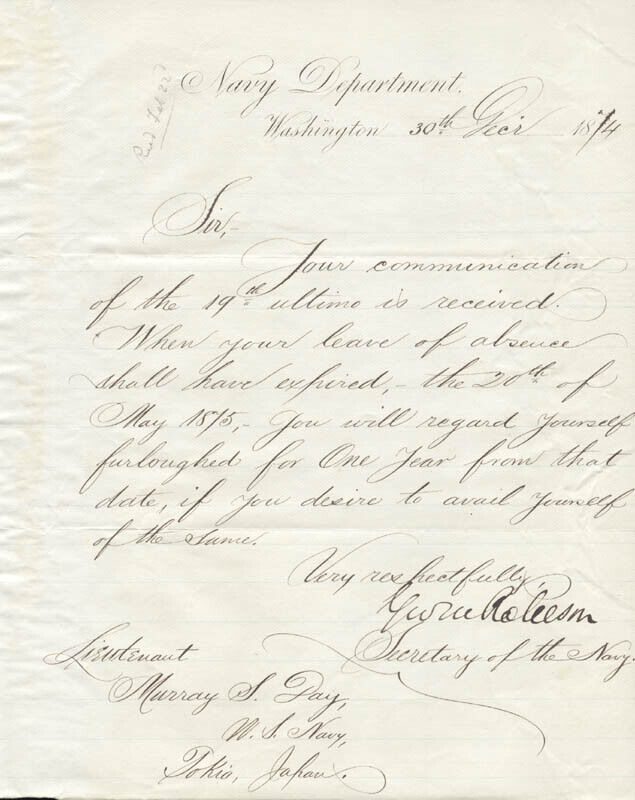 Navy Department.
Washington 30th Dec'r 1874
Rec'd Feb 22d
Sir,-
Your communication
of the 19th ultimo is received.
When your leave of absence
shall have expired,- the 20th of
May 1875,- You will regard yourself
furloughed for One Year from that
date, if you desire to avail yourself
of the same.
Very respectfully,
Geo M Robeson
Secretary of the Navy.
Lieutenant
Murray S. Day,
U. S. Navy,
Tokio, Japan.